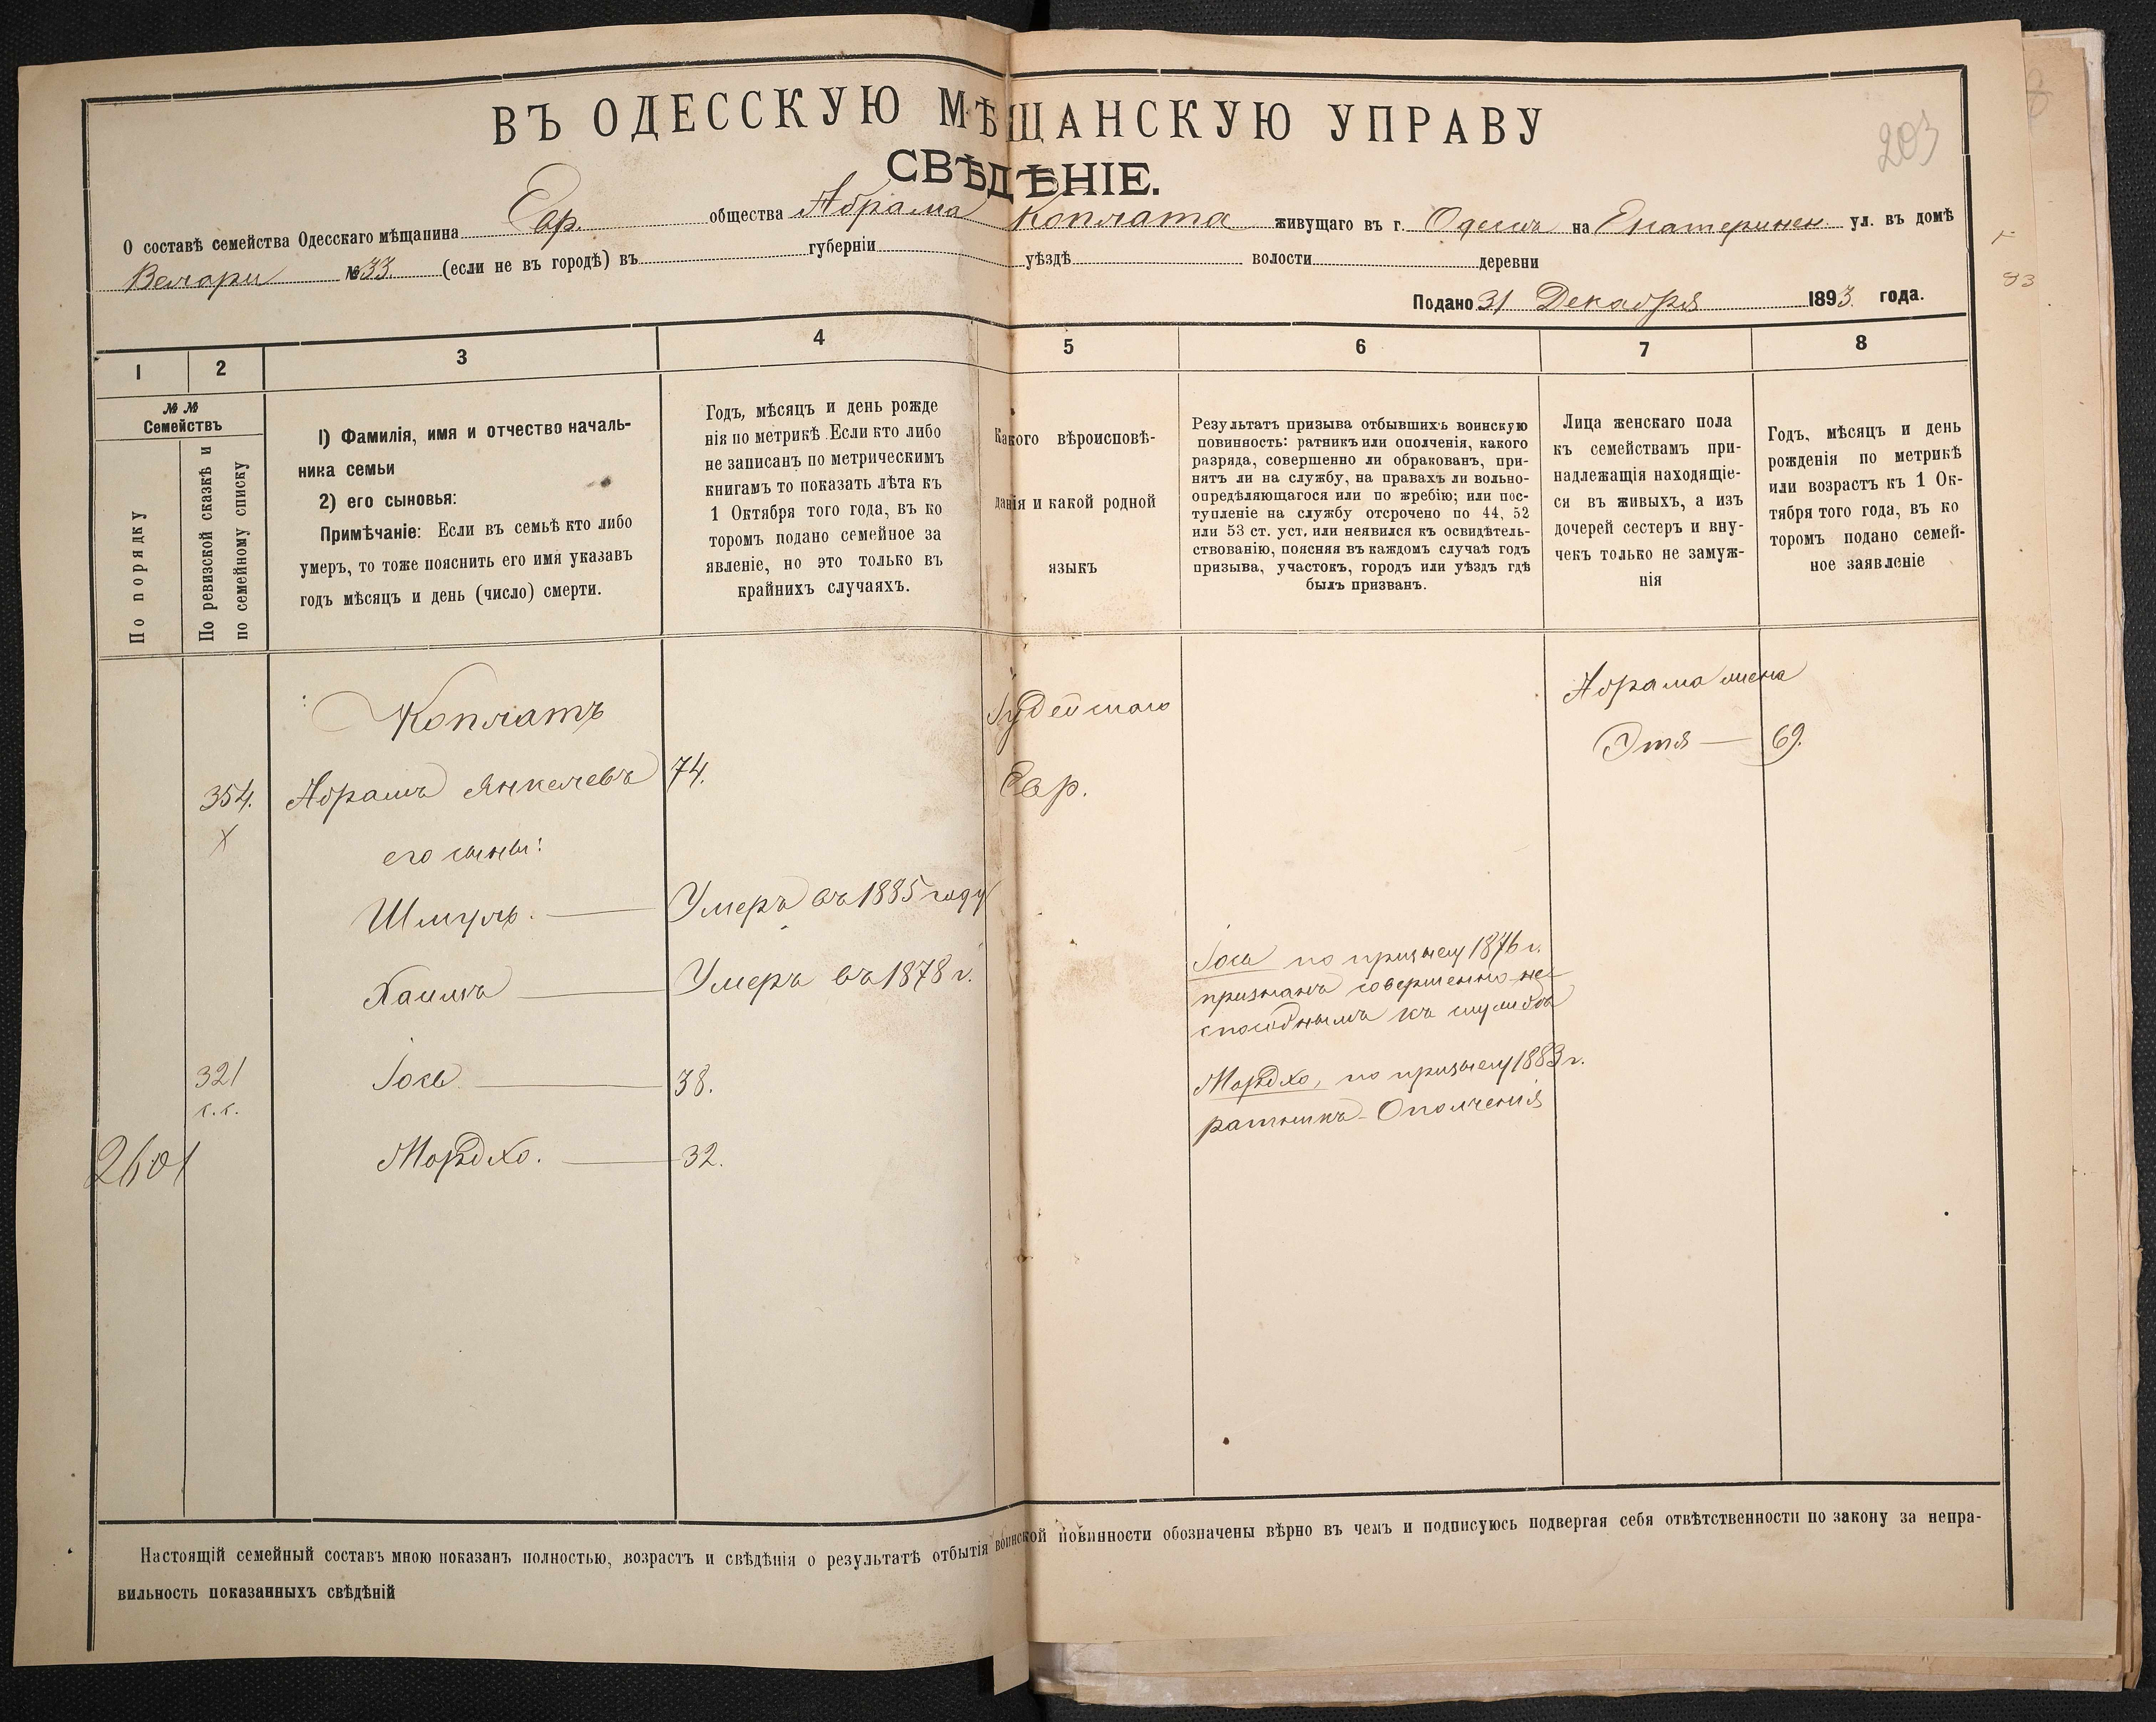 ВЪ ОДЕССКУЮ МѢЩАНСКУЮ УПРАВУ
203
СВѢДѢНІЕ.
О составѣ семейства Одесскаго мѣщанина Евр. общества Абрама Коплата живущаго въ г. Одессѣ на Екатеринен. ул. въ домѣ
№ 33. (если не въ городѣ) въ губерніи уѣздѣ волости деревни
Подано 31 Декабря 1893 года.
1 2 3 4 5 6 7 8
№ № Семействъ
По порядку
По ревизской сказкѣ и
по семейному списку
1) Фамилія, имя и отчество началь-
ника семьи
2) его сыновья:
Примѣчаніе: Если въ семьѣ кто либо
умеръ, то тоже пояснить его имя указавъ
годъ мѣсяцъ и день (число) смерти.
Годъ, мѣсяцъ и день рожде
нія по метрикѣ Если кто либо
не записанъ по метрическимъ
книгамъ то показать лѣта къ
1 Октября того года, въ ко
торомъ подано семейное за
явленіе, но это только въ
крайнихъ случаяхъ.
Какого вѣроисповѣ-
данія и какой родной
языкъ
Результатъ призыва отбывшихъ воинскую
повинность: ратникъ или ополченія, какого
разряда, совершенно ли обракованъ, при-
нятъ ли на службу, на правахъ ли вольно-
опредѣляющагося или по жребію; или пос-
тупленіе на службу отсрочено по 44, 52
или 53 ст. уст, или неявился къ освидѣтель-
ствованію, поясняя въ каждомъ случаѣ годъ
призыва, участокъ, городъ или уѣздъ гдѣ
былъ призванъ.
Лица женскаго пола
къ семействамъ при-
надлежащія находящіе-
ся въ живыхъ, а изъ
дочерей сестеръ и вну-
чекъ только не замуж-
нія
Годъ, мѣсяцъ и день
рожденія по метрикѣ
или возрастъ къ 1 Ок-
тября того года, въ ко
торомъ подано семей-
ное заявленіе
Коплатъ
Іудейскаго
Абрама жена
Этя — 69.
354. Абрамъ Янкелевъ 74.
Евр.
х
его сыны:
Шмуль. — Умеръ въ 1885 году
Хаимъ — Умеръ въ 1878 г.
Іось по призыву 1876 г.
признанъ совершенно не-
способнымъ къ службѣ
321 Іось — 38.
с.с.
Мордхо, по призыву 1883 г.
ратникъ-Ополченія
2601 Мордхо. — 32.
Настоящій семейный составъ мною показанъ полностью, возрастъ и свѣдѣнія о результатѣ отбытія воинской повинности обозначены вѣрно въ чемъ и подписуюсь подвергая себя отвѣтственности по закону за непра-
вильность показанныхъ свѣдѣній